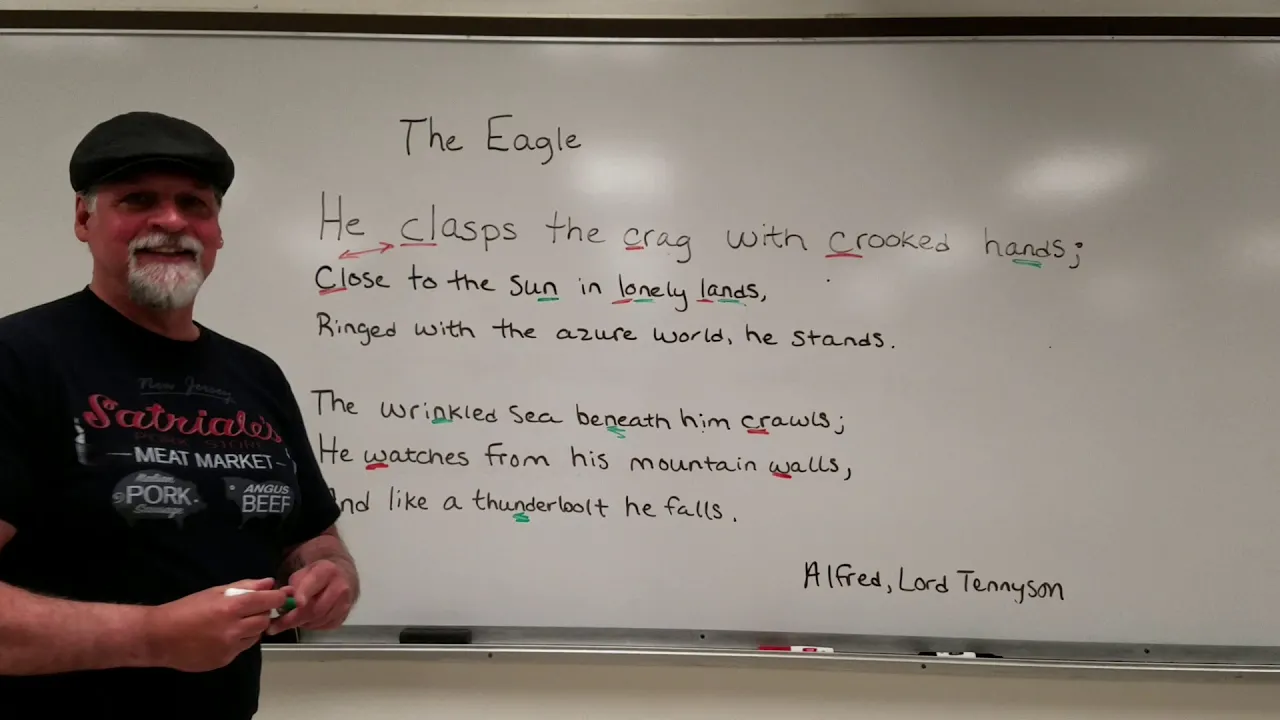 The Eagle
He clasps the crag with crooked hands;
Close to the Sun in lonely lands,
Ringed with the azure world, he stands.
The wrinkled Sea beneath him crawls;
He watches from his mountain walls,
And like a thunderloolt he falls.
Alfred, Lord Tennyson
New Jersey
Satriale's
PORK STORE
MEAT MARKET
Italian
PORK
Sausage
ANGUS
BEEF